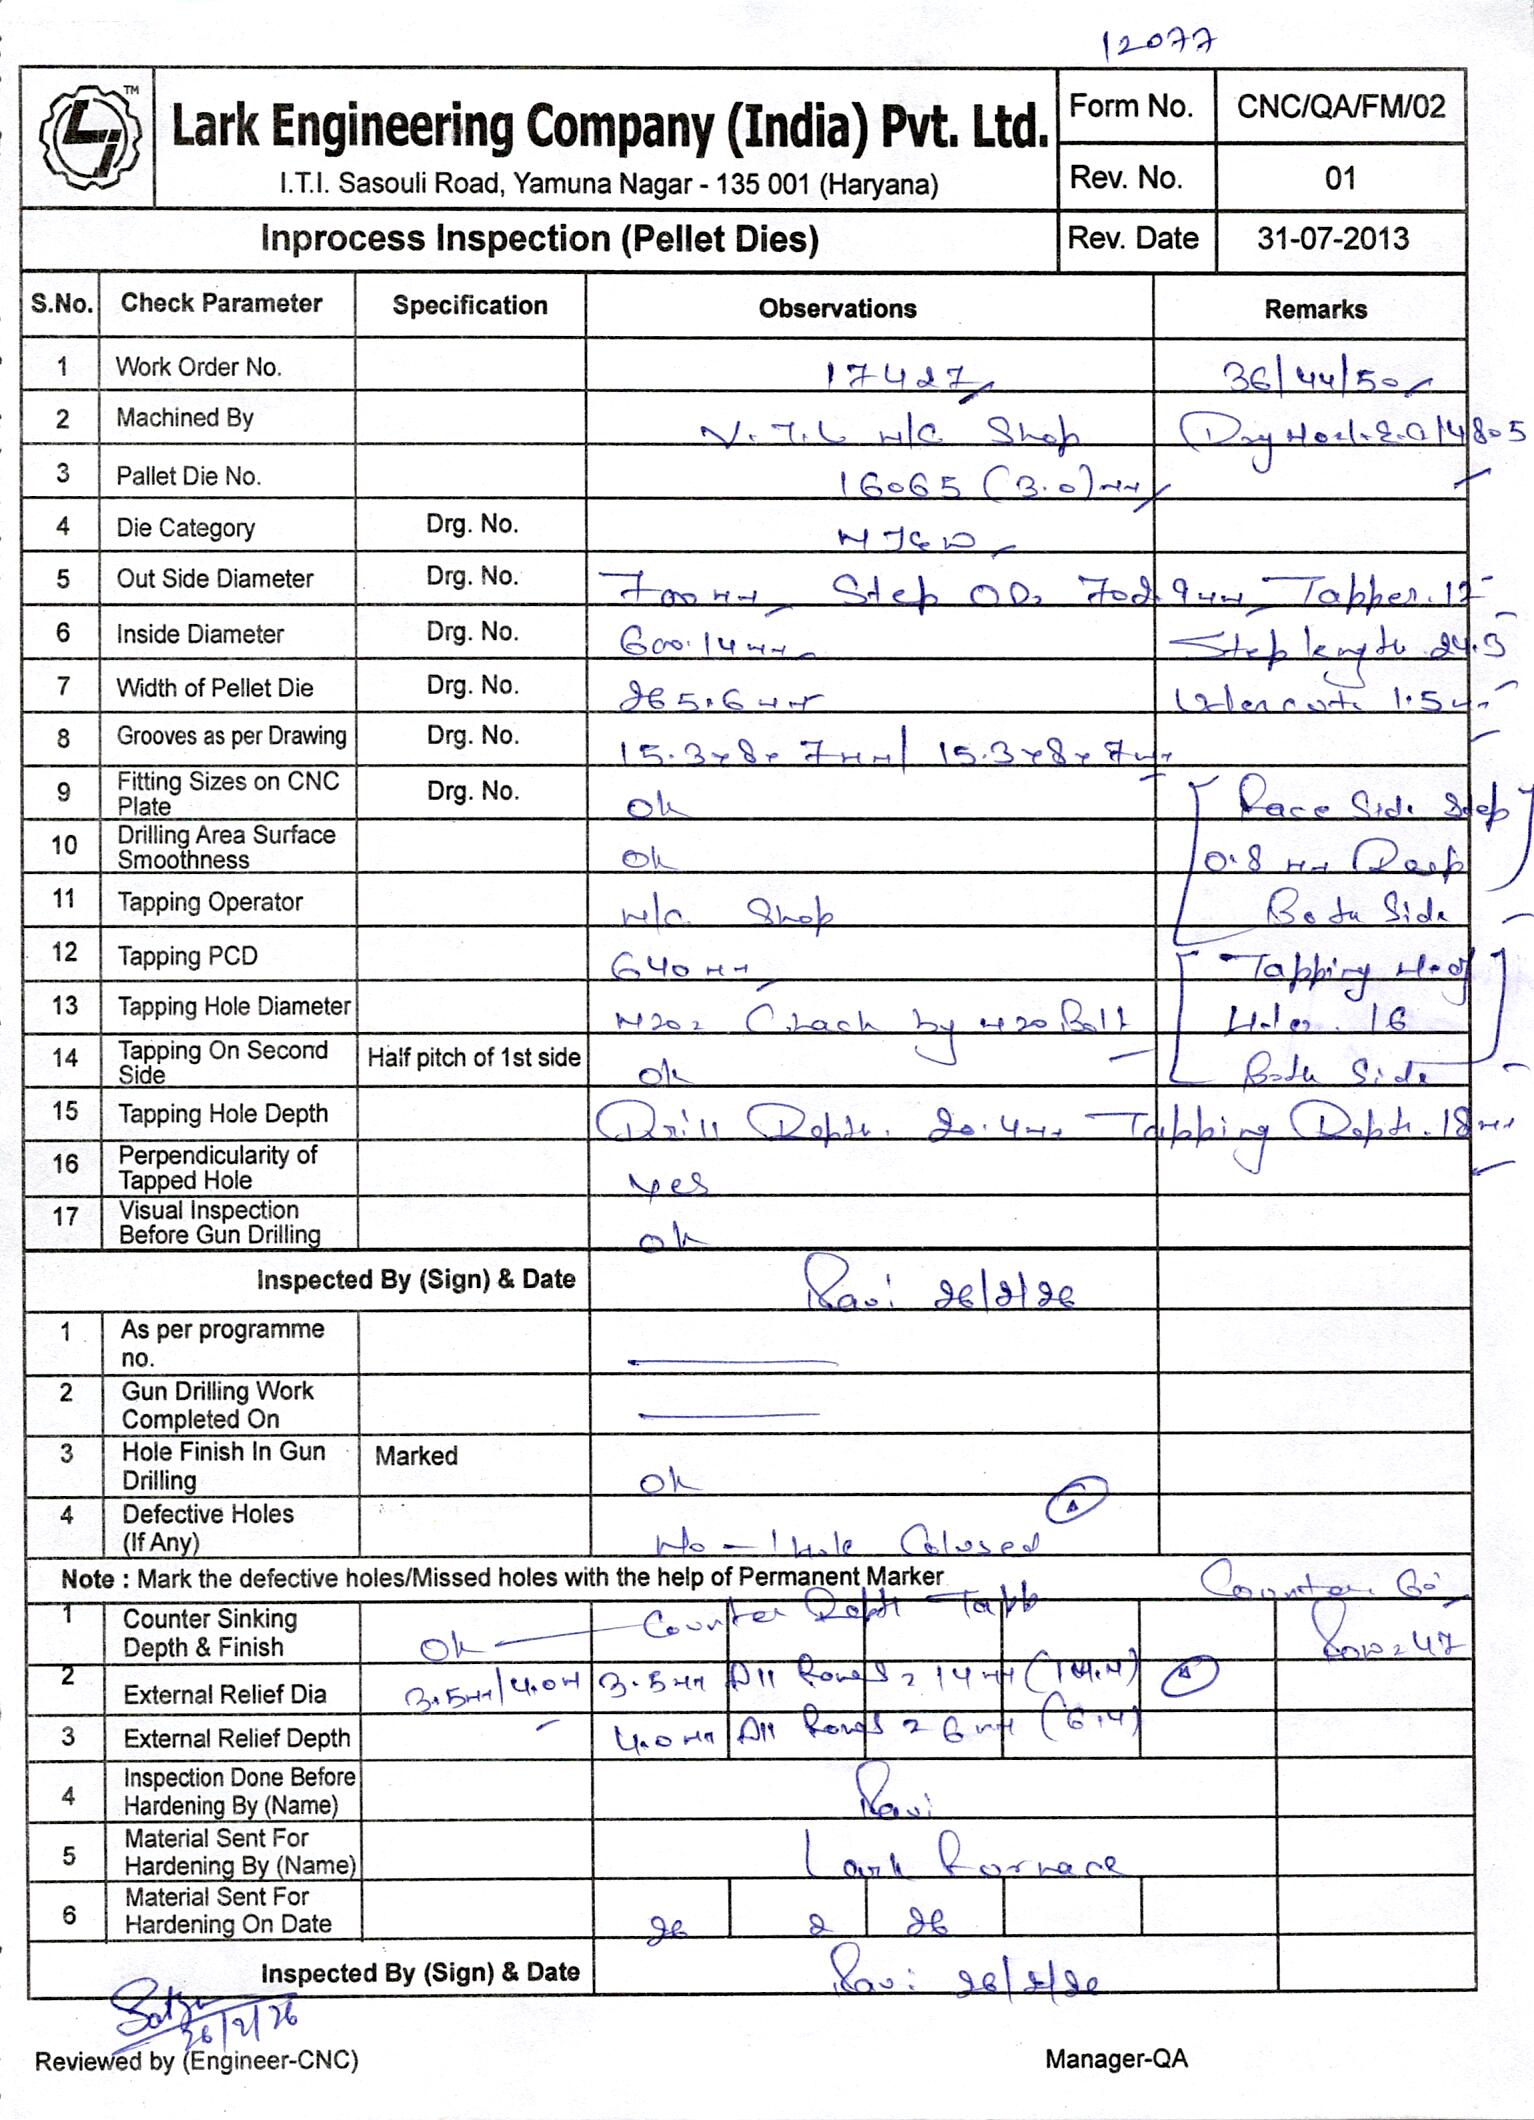 12077
TM
Lark Engineering Company (India) Pvt. Ltd.
I.T.I. Sasouli Road, Yamuna Nagar - 135 001 (Haryana)
Form No. CNC/QA/FM/02
Rev. No. 01
Inprocess Inspection (Pellet Dies)
Rev. Date 31-07-2013
S.No. Check Parameter Specification Observations Remarks
1 Work Order No. 17427 36/44/50
2 Machined By V.T.L M/C Shop
3 Pallet Die No. 16065 (3.0)mm
4 Die Category Drg. No.
5 Out Side Diameter Drg. No. 700mm Step OD. 702.9mm Tapper. 12
6 Inside Diameter Drg. No. 600.14mm Step length 24.5
7 Width of Pellet Die Drg. No. 265.6mm 1.5
8 Grooves as per Drawing Drg. No. 15.3x8x7mm/ 15.3x8x7mm
9 Fitting Sizes on CNC Plate Drg. No. Ok Face Side Step
10 Drilling Area Surface Smoothness Ok 0.8 mm Deep
11 Tapping Operator M/C Shop Both Side
12 Tapping PCD 640mm Tapping
13 Tapping Hole Diameter M20 Check by M20 Bolt Holes. 16
14 Tapping On Second Side Half pitch of 1st side Ok Both Side
15 Tapping Hole Depth Drill Depth. 20.4mm Tapping Depth. 18mm
16 Perpendicularity of Tapped Hole Yes
17 Visual Inspection Before Gun Drilling Ok
Inspected By (Sign) & Date Ravi 26/2/26
1 As per programme no.
2 Gun Drilling Work Completed On
3 Hole Finish In Gun Drilling Marked Ok
4 Defective Holes (If Any) No - 1 Hole Colused
Note : Mark the defective holes/Missed holes with the help of Permanent Marker Counter 60°
1 Counter Sinking Depth & Finish Ok Counter Depth Row = 47
2 External Relief Dia 3.5mm/4.0mm 3.5mm All Rows = 14mm (14.4)
3 External Relief Depth 4.0mm All Rows = 6mm (6.4)
4 Inspection Done Before Hardening By (Name) Ravi
5 Material Sent For Hardening By (Name) Lark Furnace
6 Material Sent For Hardening On Date 26 2 26
Inspected By (Sign) & Date Ravi 26/2/26
26/2/26
Reviewed by (Engineer-CNC) Manager-QA